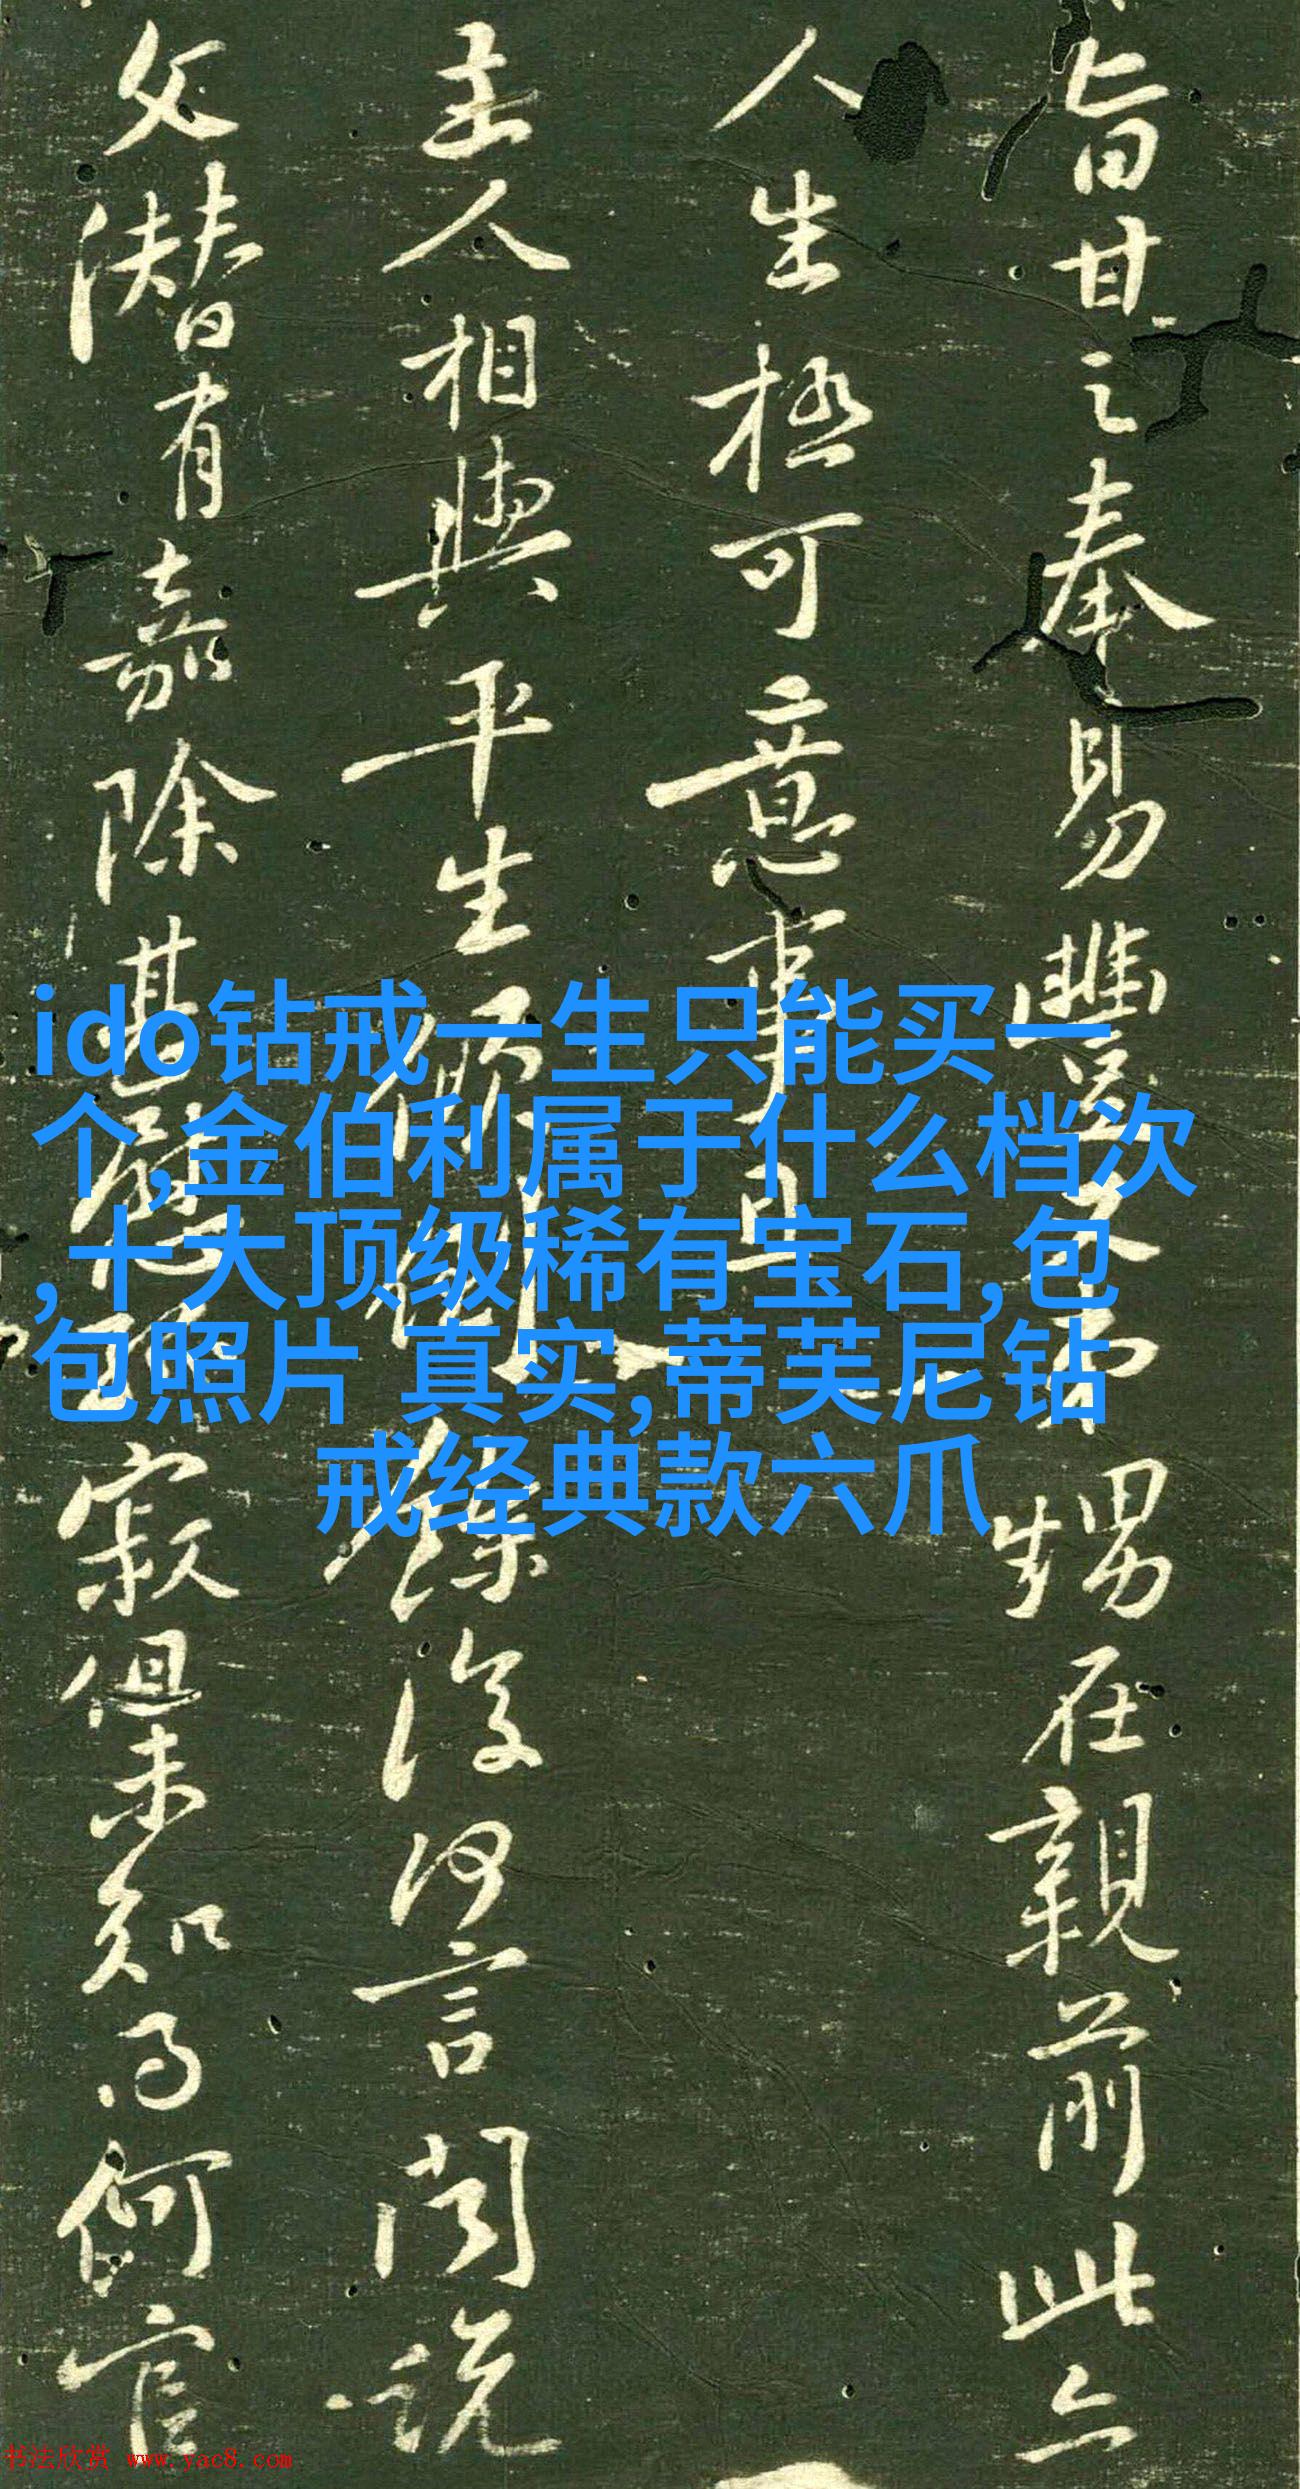 旨甘之奉易豐矣而甥在親前此亦
人生極可意事且
主人相與平生傾倒之餘復何言聞說
父潛有嘉除甚慰孤寂但未知得何官
ido钻戒一生只能买一
个,金伯利属于什么档次
,十大顶级稀有宝石,包
包照片 真实,蒂芙尼钻
戒经典款六爪
书法欣赏 www.yac8.com